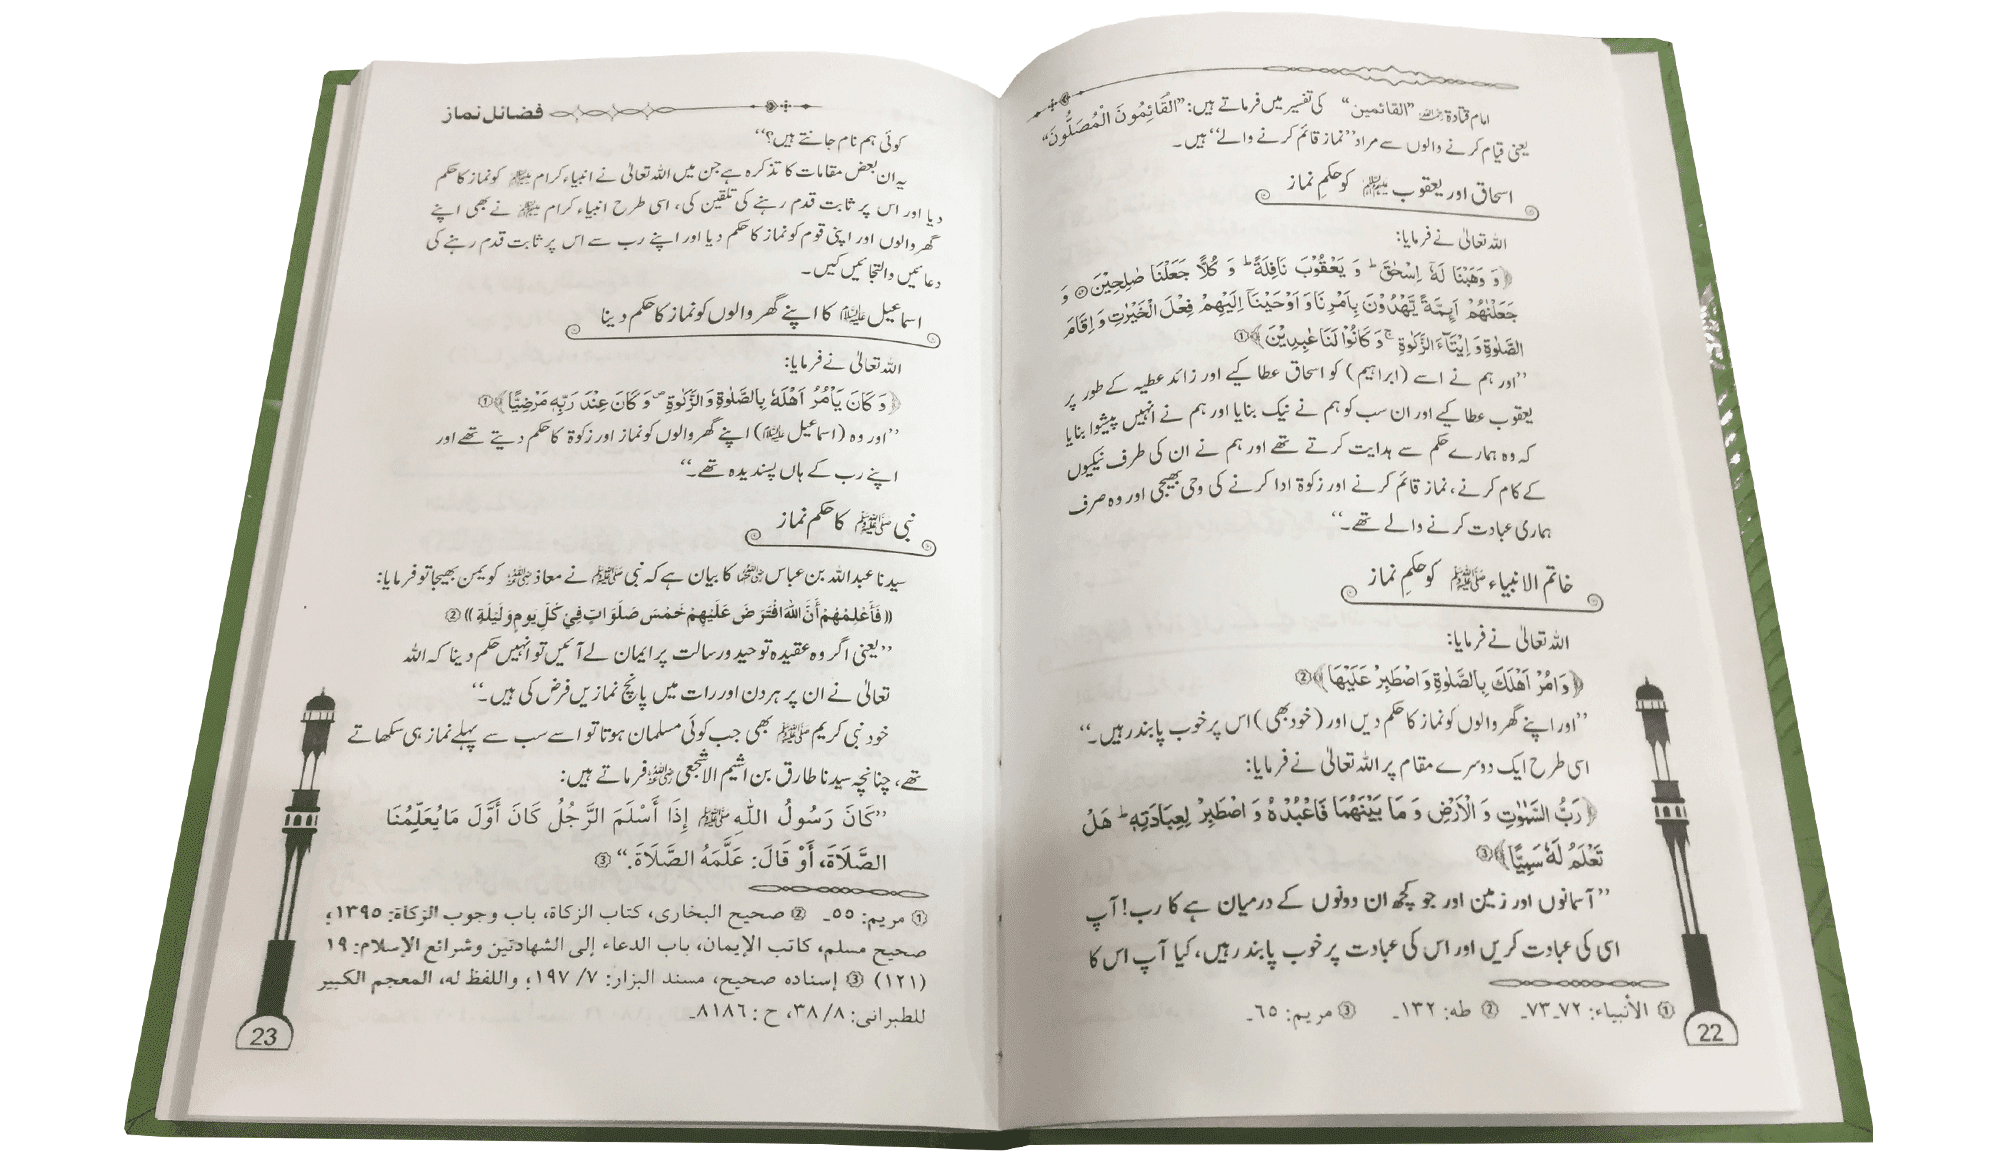 امام قتادة رحمہ اللہ ”القائمین“ کی تفسیر میں فرماتے ہیں: ”الْقَائِمُونَ الْمُصَلُّونَ“
یعنی قیام کرنے والوں سے مراد ”نماز قائم کرنے والے“ ہیں۔
اسحاق اور یعقوب علیہما السلام کو حکمِ نماز
اللہ تعالیٰ نے فرمایا:
﴿وَ وَهَبْنَا لَهٗۤ اِسْحٰقَ ؕ وَ یَعْقُوْبَ نَافِلَةً ؕ وَ كُلًّا جَعَلْنَا صٰلِحِیْنَ ۝ وَ
جَعَلْنٰهُمْ اَىِٕمَّةً یَّهْدُوْنَ بِاَمْرِنَا وَ اَوْحَیْنَاۤ اِلَیْهِمْ فِعْلَ الْخَیْرٰتِ وَ اِقَامَ
الصَّلٰوةِ وَ اِیْتَآءَ الزَّكٰوةِ ۚ وَ كَانُوْا لَنَا عٰبِدِیْنَ﴾ ①
”اور ہم نے اسے (ابراہیم) کو اسحاق عطا کیے اور زائد عطیہ کے طور پر
یعقوب عطا کیے اور ان سب کو ہم نے نیک بنایا اور ہم نے انہیں پیشوا بنایا
کہ وہ ہمارے حکم سے ہدایت کرتے تھے اور ہم نے ان کی طرف نیکیوں
کے کام کرنے، نماز قائم کرنے اور زکوۃ ادا کرنے کی وحی بھیجی اور وہ صرف
ہماری عبادت کرنے والے تھے۔“
خاتم الانبیاء ﷺ کو حکمِ نماز
اللہ تعالیٰ نے فرمایا:
﴿وَ اْمُرْ اَهْلَكَ بِالصَّلٰوةِ وَ اصْطَبِرْ عَلَیْهَا﴾ ②
”اور اپنے گھر والوں کو نماز کا حکم دیں اور (خود بھی) اس پر خوب پابند رہیں۔“
اسی طرح ایک دوسرے مقام پر اللہ تعالیٰ نے فرمایا:
﴿رَبُّ السَّمٰوٰتِ وَ الْاَرْضِ وَ مَا بَیْنَهُمَا فَاعْبُدْهُ وَ اصْطَبِرْ لِعِبَادَتِهٖ ؕ هَلْ
تَعْلَمُ لَهٗ سَمِیًّا﴾ ③
”آسمانوں اور زمین اور جو کچھ ان دونوں کے درمیان ہے کا رب! آپ
اسی کی عبادت کریں اور اس کی عبادت پر خوب پابند رہیں، کیا آپ اس کا
① الأنبياء: ٧٢۔٧٣۔ ② طه: ١٣٢۔ ③ مريم: ٦٥۔
22
فضائل نماز
کوئی ہم نام جانتے ہیں؟“
یہ ان بعض مقامات کا تذکرہ ہے جن میں اللہ تعالیٰ نے انبیاء کرام علیہم السلام کو نماز کا حکم
دیا اور اس پر ثابت قدم رہنے کی تلقین کی، اسی طرح انبیاء کرام علیہم السلام نے بھی اپنے
گھر والوں اور اپنی قوم کو نماز کا حکم دیا اور اپنے رب سے اس پر ثابت قدم رہنے کی
دعائیں والتجائیں کیں۔
اسماعیل علیہ السلام کا اپنے گھر والوں کو نماز کا حکم دینا
اللہ تعالیٰ نے فرمایا:
﴿وَ كَانَ یَاْمُرُ اَهْلَهٗ بِالصَّلٰوةِ وَ الزَّكٰوةِ ۪ وَ كَانَ عِنْدَ رَبِّهٖ مَرْضِیًّا﴾ ①
”اور وہ (اسماعیل علیہ السلام) اپنے گھر والوں کو نماز اور زکوۃ کا حکم دیتے تھے اور
اپنے رب کے ہاں پسندیدہ تھے۔“
نبی ﷺ کا حکم نماز
سیدنا عبد اللہ بن عباس رضی اللہ عنہما کا بیان ہے کہ نبی ﷺ نے معاذ رضی اللہ عنہ کو یمن بھیجا تو فرمایا:
((فَأَعْلِمْهُمْ أَنَّ اللّٰهَ افْتَرَضَ عَلَيْهِمْ خَمْسَ صَلَوَاتٍ فِيْ كُلِّ يَوْمٍ وَلَيْلَةٍ)) ②
”یعنی اگر وہ عقیدہ توحید ورسالت پر ایمان لے آئیں تو انہیں حکم دینا کہ اللہ
تعالیٰ نے ان پر ہر دن اور رات میں پانچ نمازیں فرض کی ہیں۔“
خود نبی کریم ﷺ بھی جب کوئی مسلمان ہوتا تو اسے سب سے پہلے نماز ہی سکھاتے
تھے، چنانچہ سیدنا طارق بن اشیم الاشجعی رضی اللہ عنہ فرماتے ہیں:
”كَانَ رَسُولُ اللّٰهِ ﷺ إِذَا أَسْلَمَ الرَّجُلُ كَانَ أَوَّلَ مَا يُعَلِّمُنَا
الصَّلَاةَ، أَوْ قَالَ: عَلَّمَهُ الصَّلَاةَ.“ ③
① مريم: ٥٥۔ ② صحيح البخاری، كتاب الزكاة، باب وجوب الزكاة: ١٣٩٥؛
صحيح مسلم، كاتب الإيمان، باب الدعاء إلى الشهادتين وشرائع الإسلام: ١٩
(١٢١) ③ إسناده صحيح، مسند البزار: ٧/ ١٩٧؛ واللفظ له، المعجم الكبير
للطبرانی: ٨/ ٣٨، ح: ٨١٨٦۔
23